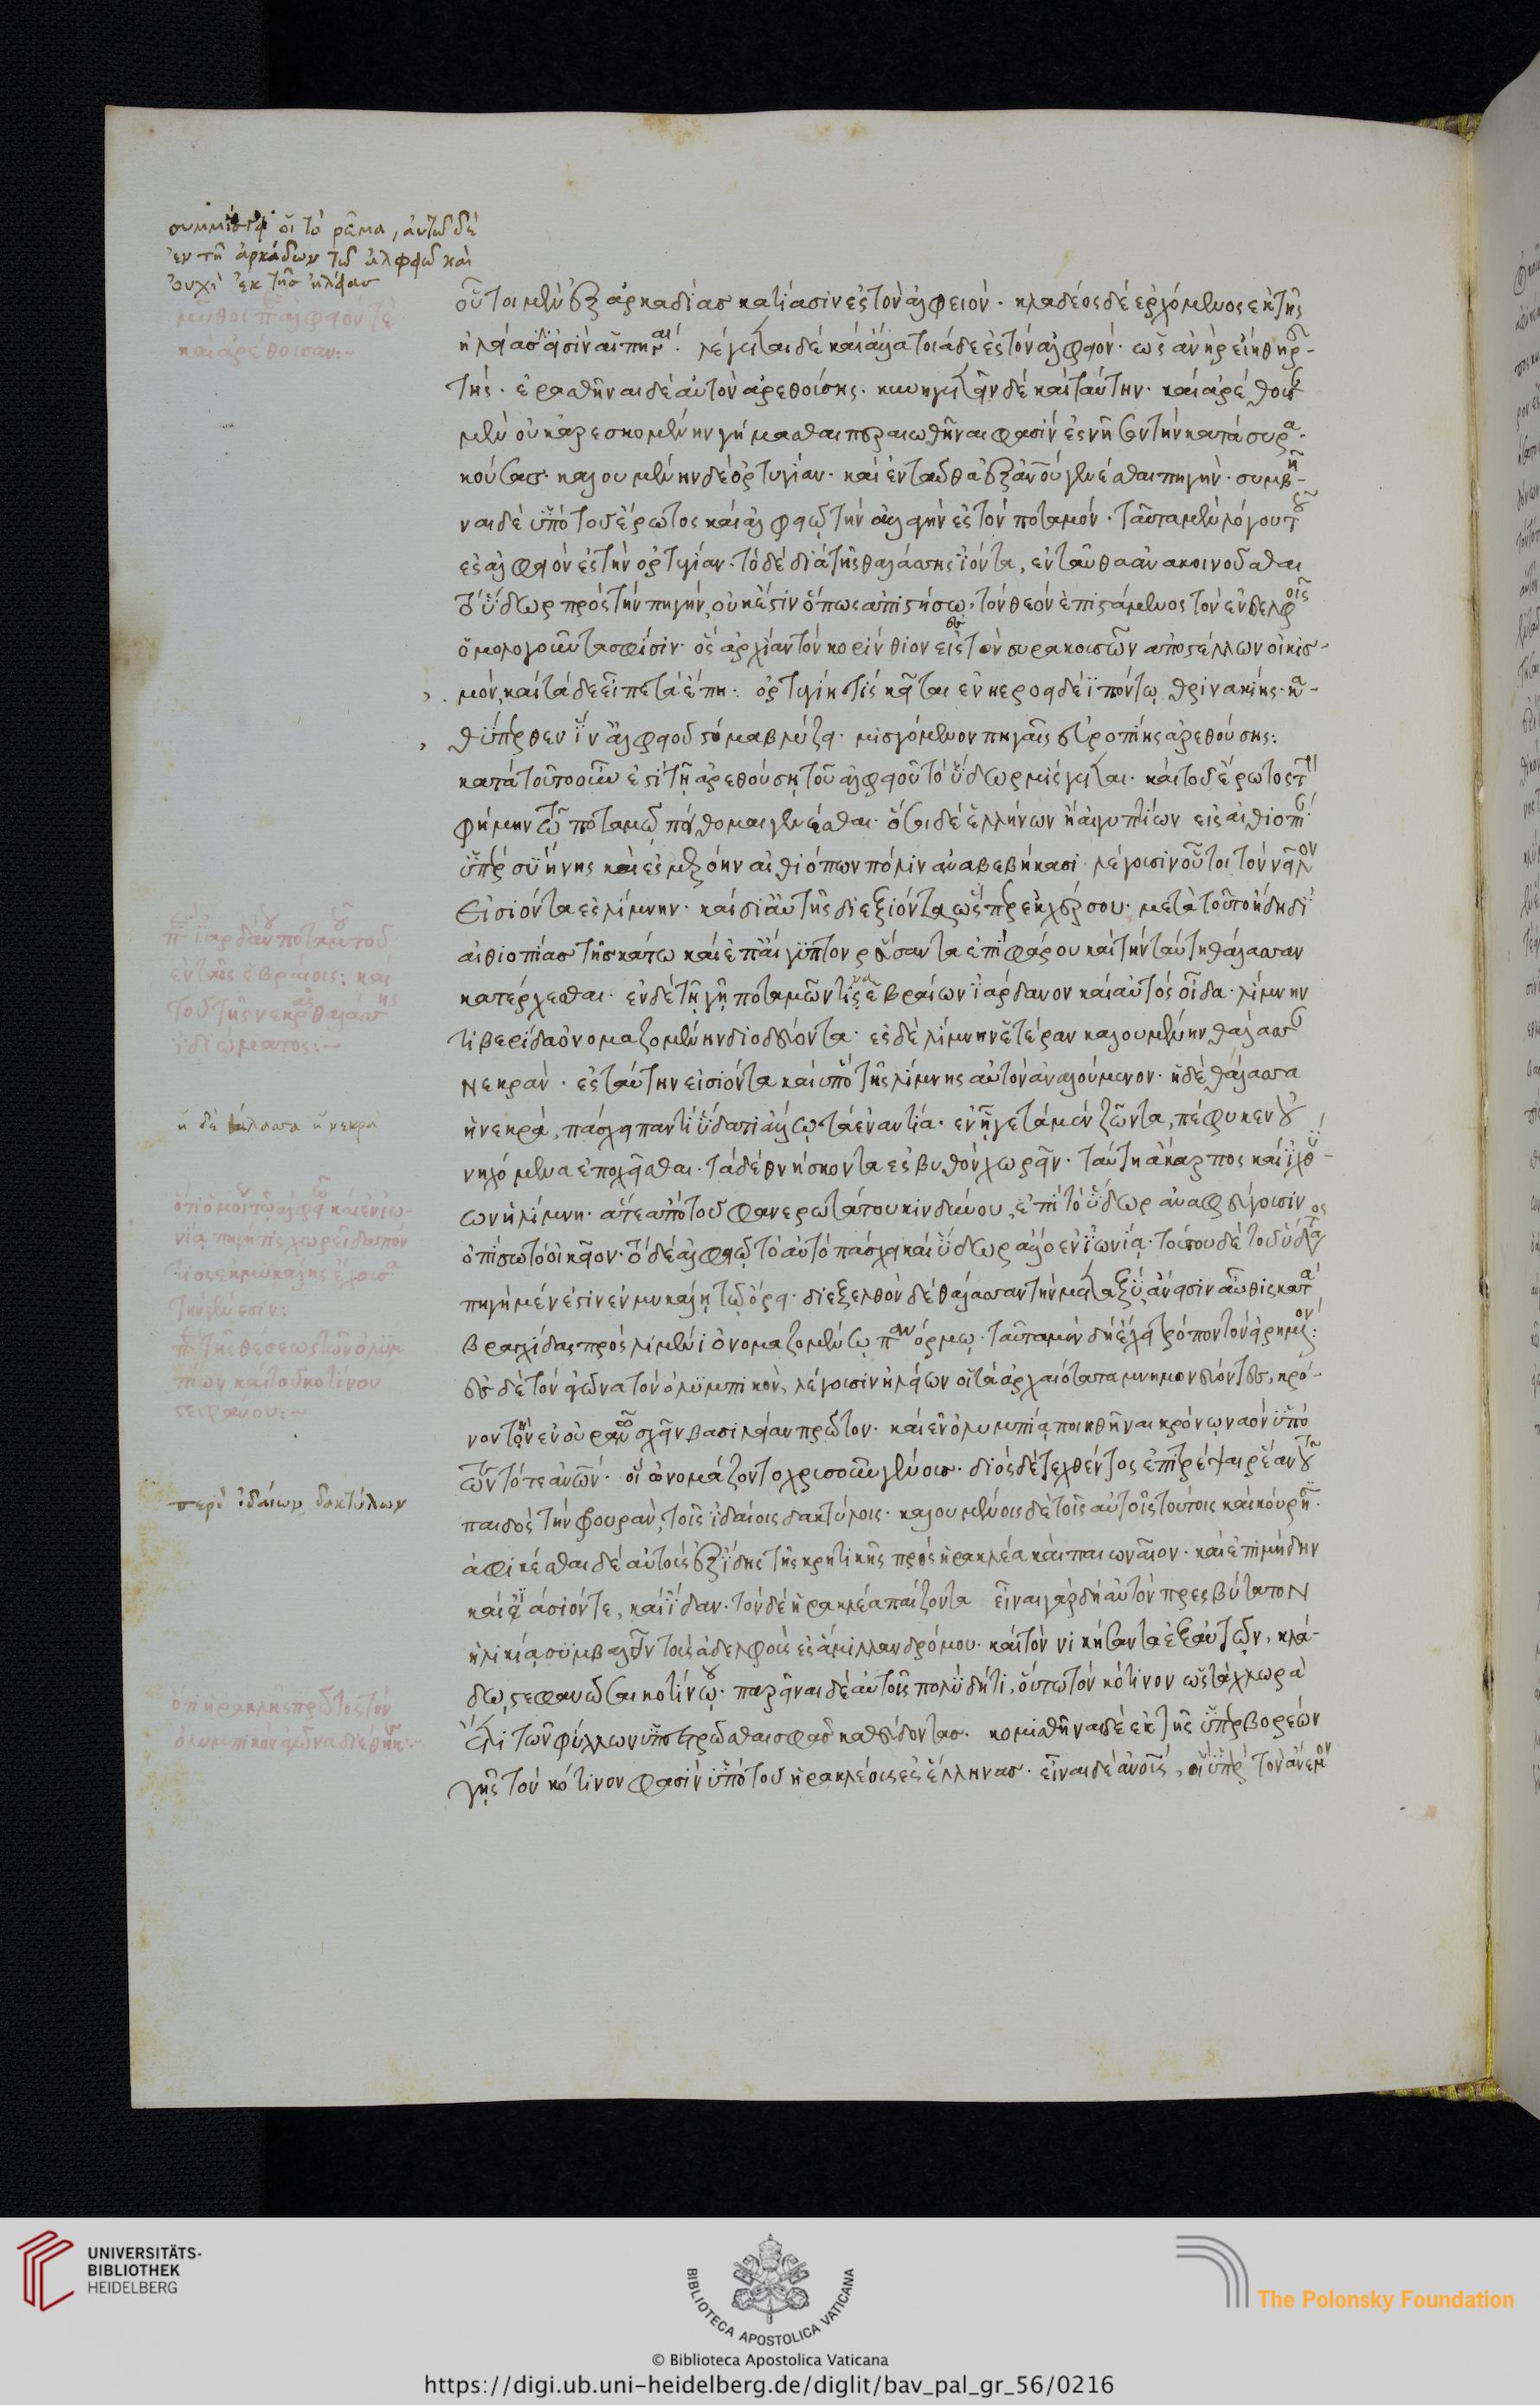 συμμίσγει οἱ τὸ ῥεῦμα, αὐτῶ δὲ
ἐν τῆ ἀρκάδων τῶ ἀλφειῶ καὶ
οὐχὶ ἐκ τῆσ ἠλείασ
μῦθοι π ἀλφειόν τὲ
καὶ ἀρέθουσαν:-
οὗτοι μὲν ἐξ ἀρκαδίασ κατίασιν ἐς τὸν ἀλφειόν · κλαδέος δὲ ἐρχόμενος ἐκ τῆς
ἠλείασ λέγεται δὲ καὶ ἄλλα τοιάδε ἐς τὸν ἀλφειόν · ὡς ἀνὴρ εἴη θηρευ-
τής · ἐρασθῆναι δὲ αὐτὸν ἀρεθούσης · κυνηγετεῖν δὲ καὶ ταύτην · καὶ ἀρέθουσαν
μὲν οὐκ ἀρεσκομένην γήμασθαι περαιωθῆναι φασὶν ἐς νῆσον τὴν κατὰ συρα-
κούσας · καλουμένην δὲ ὀρτυγίαν · καὶ ἐνταῦθα ἐξ ἀνοῦ γενέσθαι πηγήν · συμβῆ-
ναι δὲ ὑπὸ τοῦ ἔρωτος καὶ ἀλφειῶ τὴν ἀλλαγὴν ἐς τὸν ποταμόν · ταῦτα μὲν λόγου τοῦ
ἐς ἀλφειὸν ἐς τὴν ὀρτυγίαν · τὸ δὲ διὰ τῆς θαλάσσης ἰόντα, ἐνταῦθα ἀνακοινοῦσθαι
τὸ ὕδωρ πρὸς τὴν πηγήν, οὐκ ἔστιν ὅπως ἀπιστήσω, τὸν θεὸν ἐπιστάμενος τὸν ἐν δελφοῖς
ὁμολογοῦντα σφίσιν · ὃς ἀρχίαν τὸν κορίνθιον εἰς τὸν συρακουσῶν ἀποστέλλων οἰκισ-
μόν, καὶ τάδε εἶπε τὰ ἔπη: ὀρτυγίη τίς κεῖται ἐν ἠεροειδέϊ πόντω, θρινακίης κα-
θύπερθεν ἵν ἀλφειοῦ στόμα βλύζει · μισγόμενον πηγαῖς εὐροπίης ἀρεθούσης:
κατὰ τοῦτο οὖν ἐστὶ τῆ ἀρεθούση τοῦ ἀλφειοῦ τὸ ὕδωρ μίσγεται · καὶ τοῦ ἔρωτος τὴν
φήμην τῶ ποταμῶ πείθομαι γενέσθαι · ὅσοι δὲ ἑλλήνων ἢ αἰγυπτίων εἰς αἰθιοπίαν
ὑπὲρ συήνης καὶ ἐς μερόην αἰθιόπων πόλιν ἀναβεβήκασι λέγουσιν οὗτοι τὸν νεῖλον
ἐσιόντα ἐς λίμνην · καὶ δι αὐτῆς διεξιόντα, ὥσπερ ἐκ χέρσου · μετὰ τοῦτο ἤδη δι
αἰθιοπίασ τῆς κάτω καὶ ἐπ αἴγυπτον ῥεύσαντα ἐπὶ φάρου καὶ τὴν ταύτη θάλασσαν
κατέρχεσθαι · ἐν δὲ τῆ γῆ ποταμῶν τῆ ἑβραίων ἰάρδανον καὶ αὐτὸς οἶδα · λίμνην
τιβερίδα ὀνομαζομένην διοδεύοντα · ἐς δὲ λίμνην ἑτέραν καλουμένην θάλασσαν
νεκράν · ἐς ταύτην ἐσιόντα καὶ ὑπὸ τῆς λίμνης αὐτὸν ἀναλούμενον · ἡ δὲ θάλασσα
ἡ νεκρά, πάσχει παντὶ ὕδατι ἄλλω τὰ ἐναντία · ἐν ἧ γε τὰ μὲν ζῶντα, πέφυκεν οὐ
νηχόμενα ἐποχεῖσθαι · τὰ δὲ θνήσκοντα ἐς βυθὸν χωρεῖν · ταύτη ἄκαρπος καὶ ἰχθύ-
ων ἡ λίμνη · ἅτε ἀπὸ τοῦ φανερωτάτου κινδύνου, ἐπὶ τὸ ὕδωρ ἀναφεύγουσιν
ὀπίσω τὸ οἰκεῖον · τὸ δὲ ἀλφειῶ τὸ αὐτὸ πάσχει καὶ ὕδωρ ἄλλο ἐν ἰωνία · τούτου δὲ τοῦ ὕδατος
πηγὴ μέν ἐστιν ἐν μυκάλη τῶ ὄρει · διεξελθὸν δὲ θάλασσαν τὴν μεταξύ, ἄνεισιν αὖθις κατὰ
βραγχίδας πρὸς λιμένι ὀνομαζομένω πανόρμω · ταῦτα μὲν δὴ ἔχει τρόπον τὸν εἰρημένον:
ἐς δὲ τὸν ἀγῶνα τὸν ὀλυμπικόν, λέγουσιν ἠλείων οἱ τὰ ἀρχαιότατα μνημονεύοντες, κρό-
νον τὴν ἐν οὐρανῶ σχεῖν βασιλείαν πρῶτον · καὶ ἐν ὀλυμπία ποιηθῆναι κρόνω ναὸν ὑπὸ
τῶν τότε ἀνῶν · οἳ ὠνομάζοντο χρυσοῦν γένος · διὸς δὲ τεχθέντος ἐπιτρέψαι ῥέαν τοῦ
παιδὸς τὴν φρουράν, τοῖς ἰδαίοις δακτύλοις · καλουμένοις δὲ τοῖς αὐτοῖς τούτοις καὶ κούρησιν ·
ἀφικέσθαι δὲ αὐτοὺς ἐξ ἴδης τῆς κρητικῆς πρὸς ἡρακλέα καὶ παιωναῖον · καὶ ἐπιμήδην
καὶ ἰάσιόν τε, καὶ ἴδαν · τὸν δὲ ἡρακλέα παίζοντα εἶναι γὰρ δὴ αὐτὸν πρεσβύτατον
ἡλικία, συμβαλεῖν τοὺς ἀδελφοὺς ἐς ἅμιλλαν δρόμου · καὶ τὸν νικήσαντα ἐξ αὐτῶν, κλά-
δω, στεφανῶσαι κοτίνου · παρεῖναι δὲ αὐτοῖς πολὺ δή τι, οὕτω τὸν κότινον ὡς τὰ χλωρὰ
ἔτι τῶν φύλλων ὑπεστρῶσθαι σφᾶς καθεύδοντας · κομισθῆναι δὲ ἐκ τῆς ὑπερβορέων
γῆς τὸν κότινον φασὶν ὑπὸ τοῦ ἡρακλέους ἐς ἕλληνασ · εἶναι δὲ ἀνοῦς, οἳ ὑπὲρ τὸν ἄνεμον
π ἰαρδάνου ποταμοῦ τοῦ
ἐν τοῖς ἑβραίοις: καὶ
τοῦ τῆς νεκρᾶς θαλάσσης
ἰδιώματος:-
ἡ δὲ θάλασσα ἡ νεκρὰ
ὅτι ὅμοιον τῶ ἀλφειῶ καὶ ἐν ἰω-
νία πηγή τις
τιος ἐκ μυκάλης ἔχουσα
τὴν γένεσιν:
π τῆς θέσεως τῶν ὀλυμ
πίων καὶ τοῦ κοτίνου
στεφάνου:-
περὶ ἰδαίων δακτύλων
ὅτι ἡρακλῆς πρῶτος τὸν
ὀλυμπικὸν ἀγῶνα διέθηκε:-
UNIVERSITÄTS-
BIBLIOTHEK
HEIDELBERG
BIBLIOTECA APOSTOLICA VATICANA
The Polonsky Foundation
© Biblioteca Apostolica Vaticana
https://digi.ub.uni-heidelberg.de/diglit/bav_pal_gr_56/0216